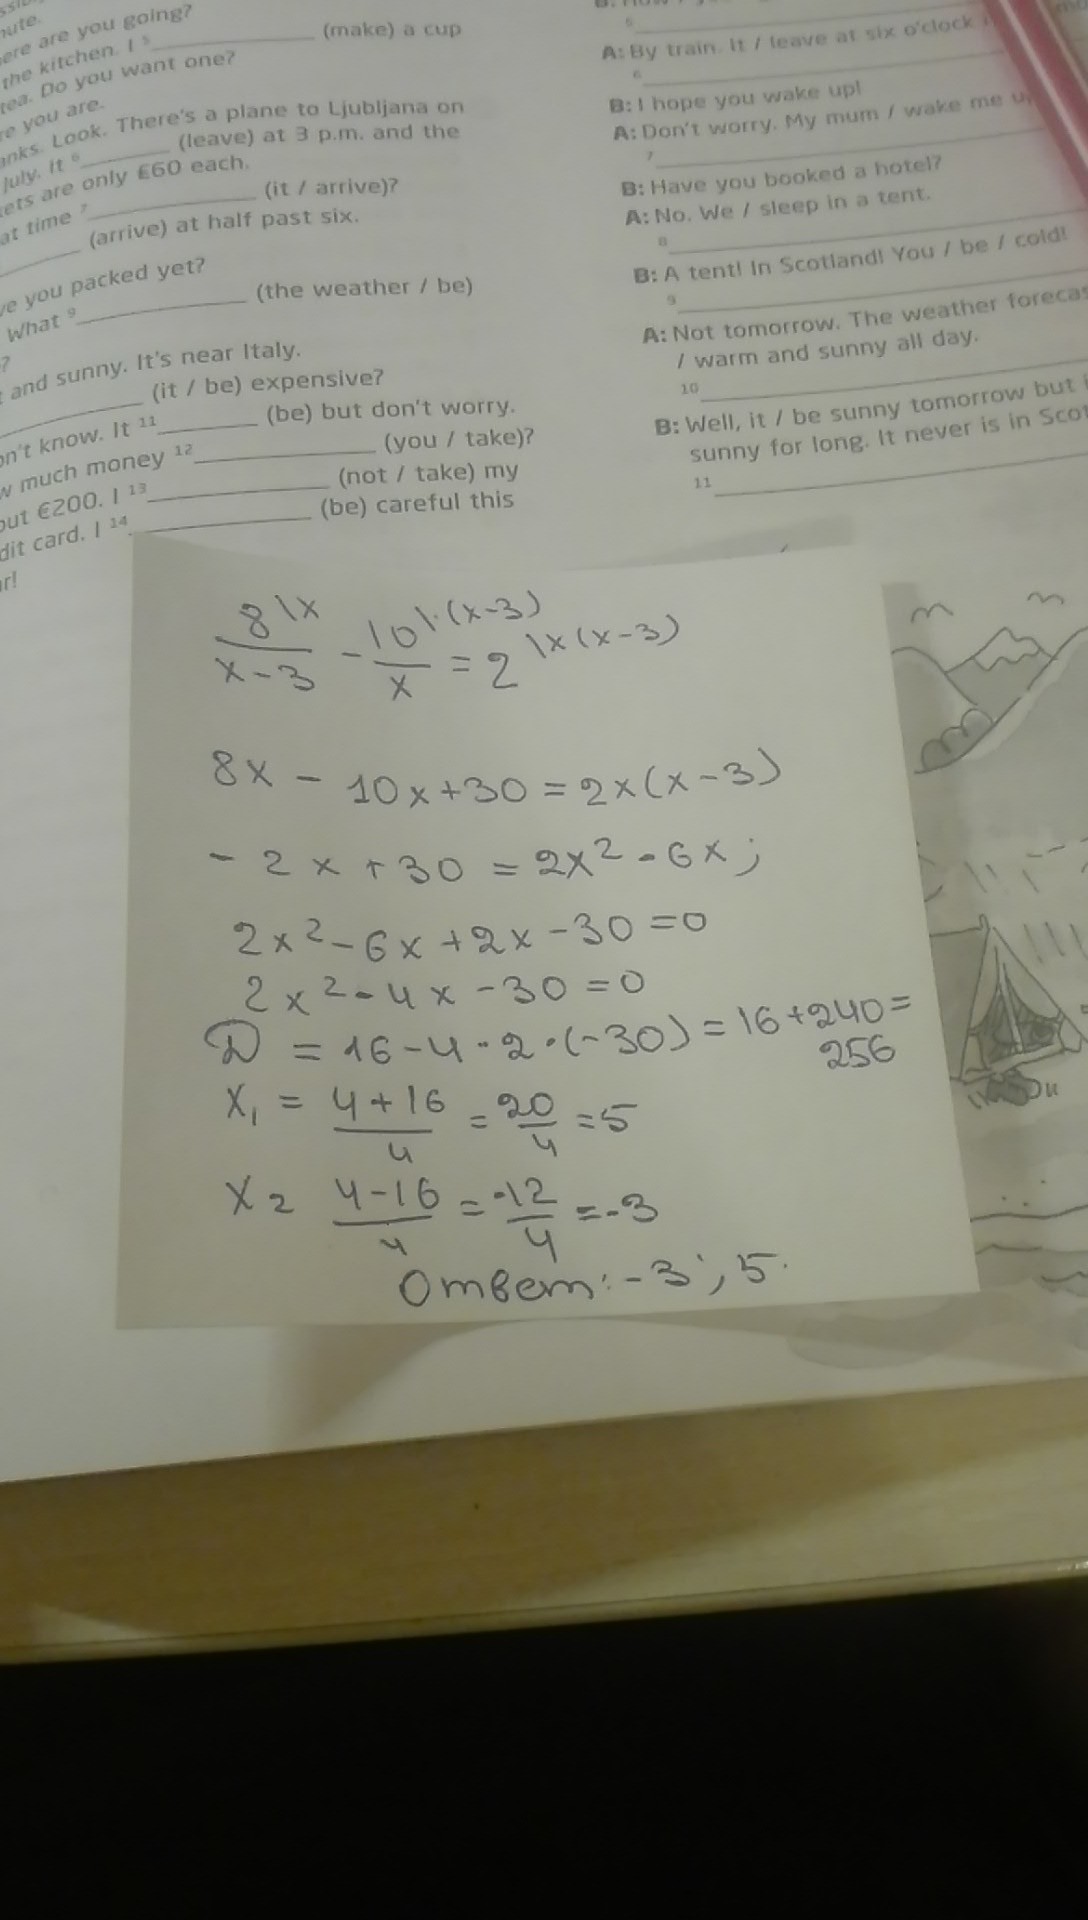 ere are you going?
the kitchen. I 5 ____ (make) a cup
tea. Do you want one?
you are.
Look. There's a plane to Ljubljana on
July. It 6 ____ (leave) at 3 p.m. and the
are only £60 each.
at time 7 ____ (it / arrive)?
____ (arrive) at half past six.
you packed yet?
What 9 ____ (the weather / be)
?
and sunny. It's near Italy.
____ (it / be) expensive?
know. It 11 ____ (be) but don't worry.
much money 12 ____ (you / take)?
€200. I 13 ____ (not / take) my
card. I 14 ____ (be) careful this
5
A: By train. It / leave at six o'clock
6
B: I hope you wake up!
A: Don't worry. My mum / wake me
7
B: Have you booked a hotel?
A: No. We / sleep in a tent.
8
B: A tent! In Scotland! You / be / cold!
9
A: Not tomorrow. The weather forecas
/ warm and sunny all day.
10
B: Well, it / be sunny tomorrow but
sunny for long. It never is in Scot
11
8\x/(x-3) - 10\·(x-3)/x = 2\x(x-3)
8x - 10x+30 = 2x(x-3)
- 2x + 30 = 2x² - 6x;
2x² - 6x + 2x - 30 = 0
2x² - 4x - 30 = 0
D = 16 - 4 · 2 · (-30) = 16 + 240 =
256
x₁ = (4+16)/4 = 20/4 = 5
x₂ (4-16)/4 = -12/4 = -3
Ответ: -3 ; 5.